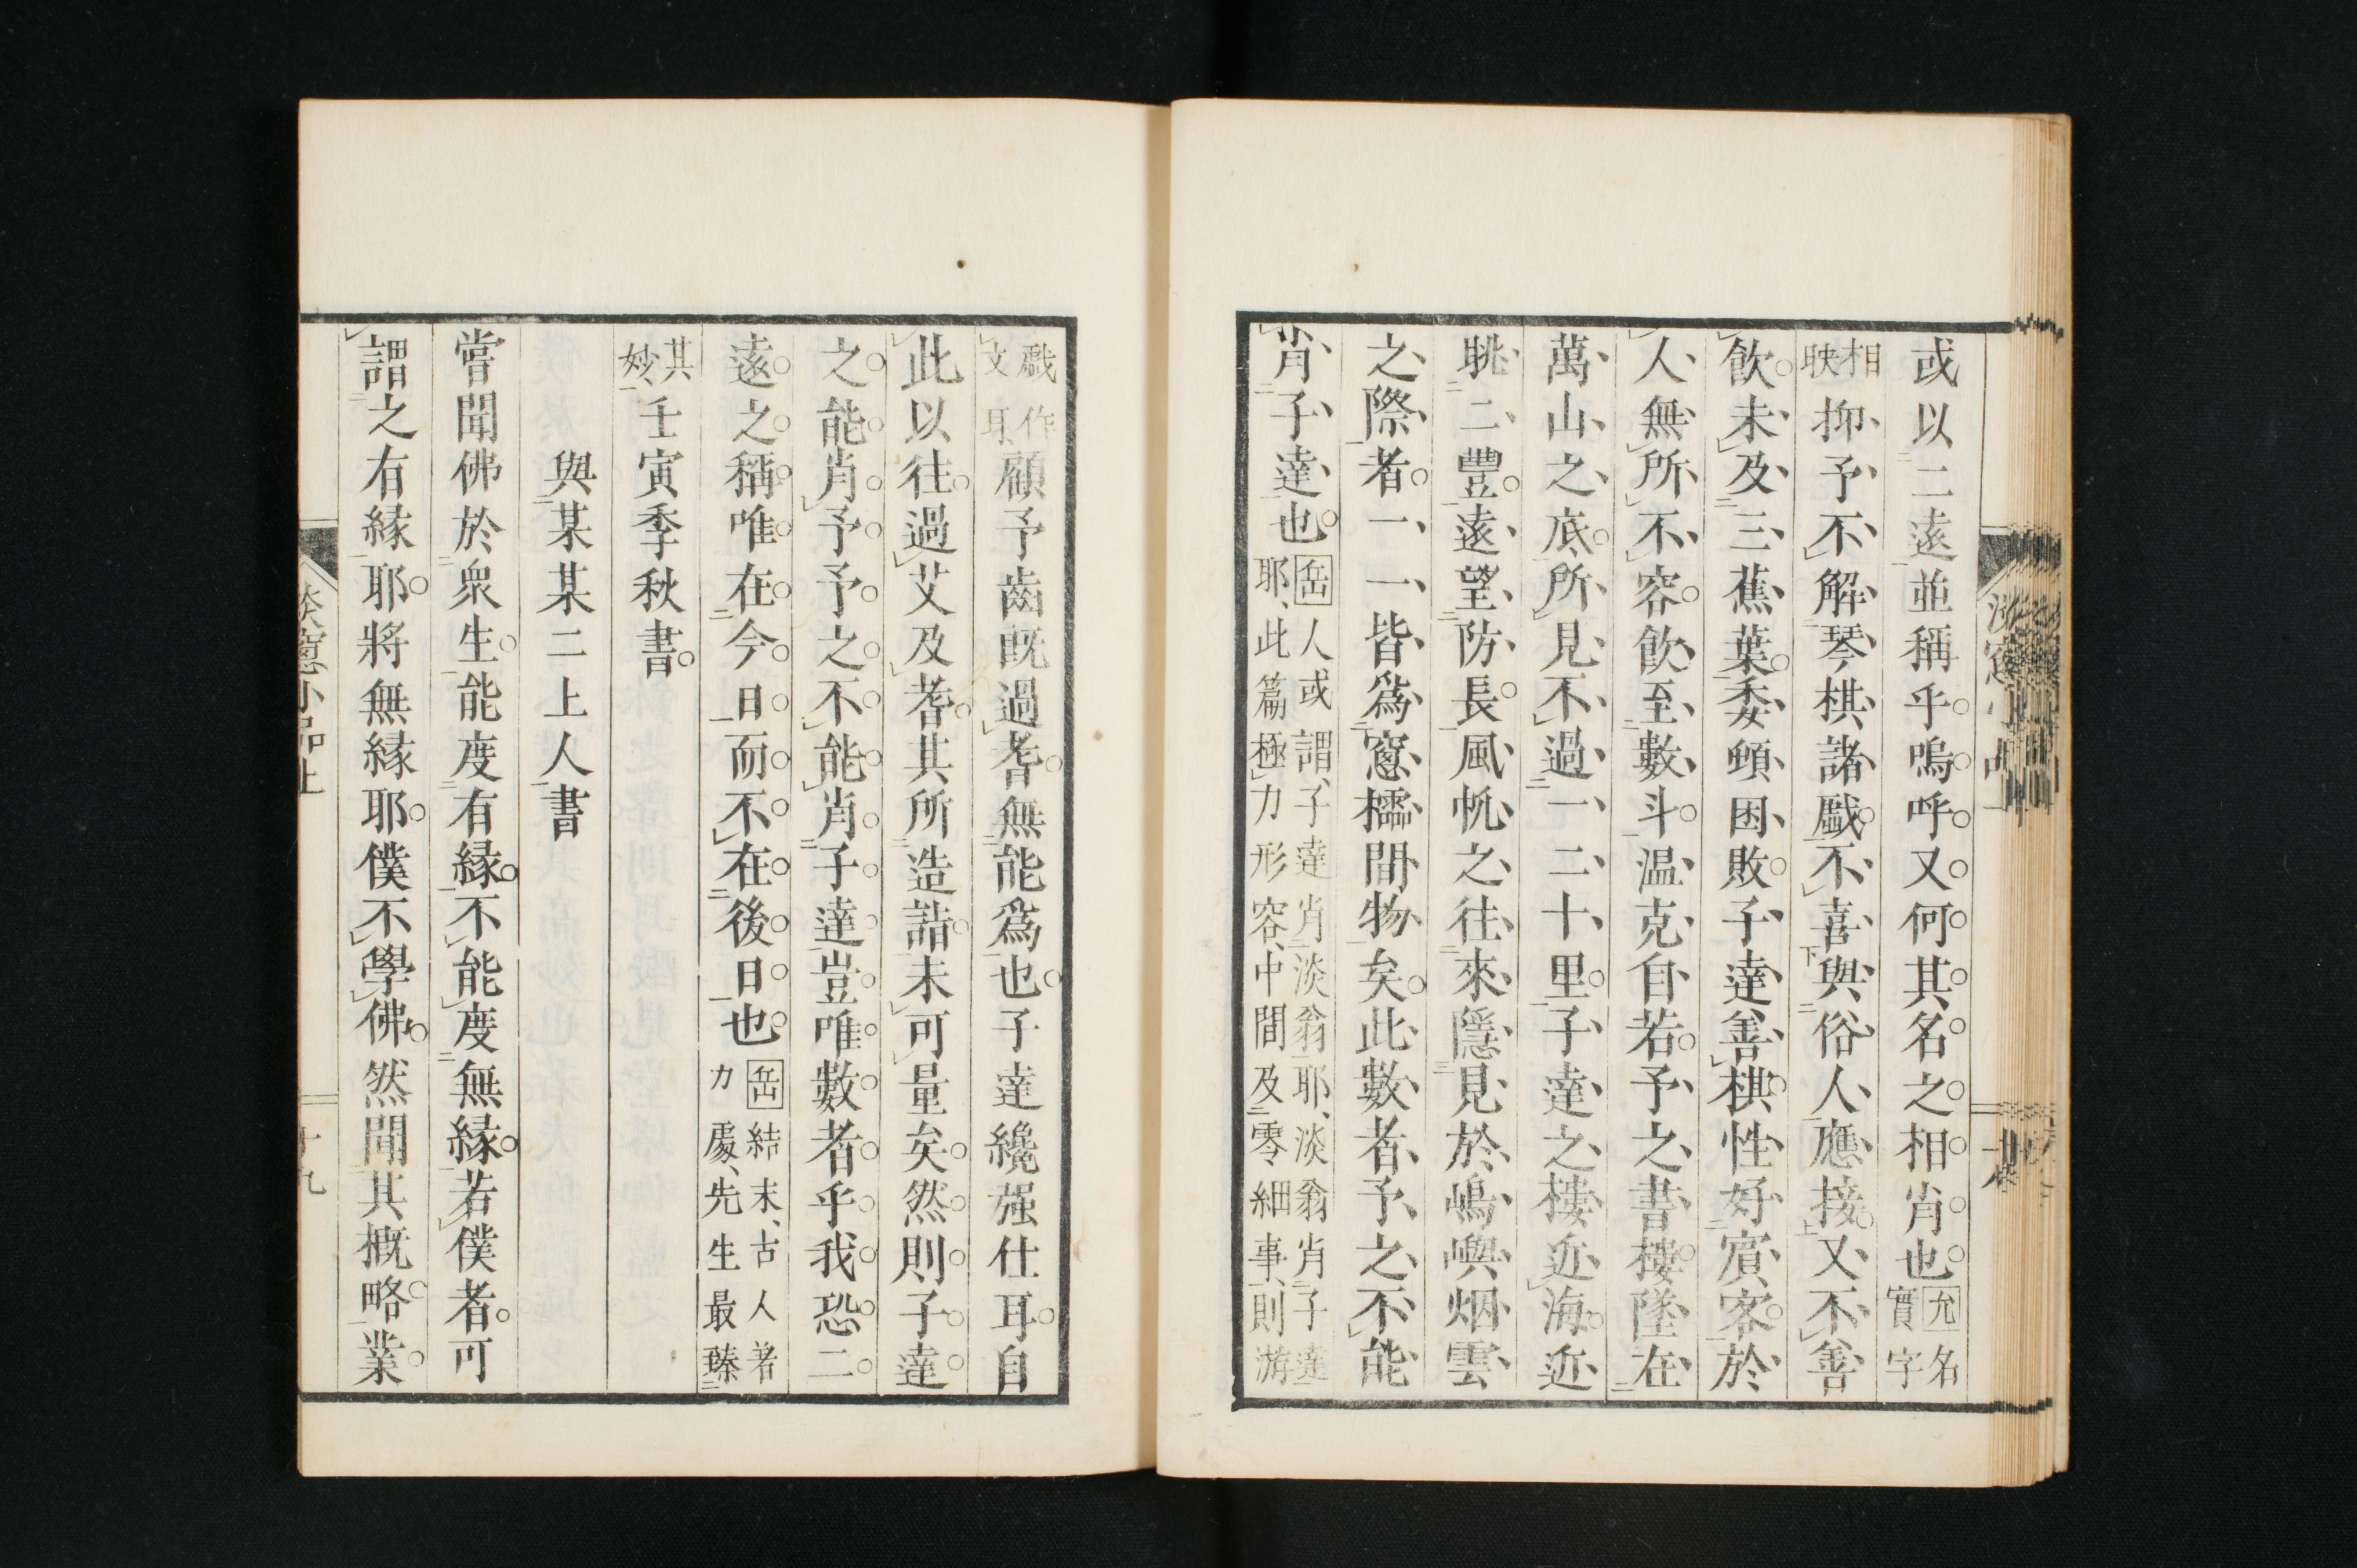 或以二遠並稱乎嗚呼又何其名之相肖也允名實字
相映抑予不解琴棋諸戲不喜與俗人應接又不善
飮未及三蕉葉委頓困敗子達善棋性好賓客於
人無所不容飮至數斗温克自若予之書樓墜在
萬山之底所見不過一二十里子達之樓近海近
眺二豐遠望防長風帆之往來隱見於嶋嶼烟雲
之際者一一皆爲窻櫺間物矣此數者予之不能
肖子達也岳人或謂子達肖淡翁耶淡翁肖子達耶此篇極力形容中間及零細事則游
戲作文耳顧予齒既過耆無能爲也子達纔强仕耳自
此以往過艾及耆其所造詣未可量矣然則子達
之能肖予予之不能肖子達豈唯數者乎我恐二
遠之稱唯在今日而不在後日也岳結末古人著力處先生最臻
其妙壬寅季秋書
與某某二上人書
嘗聞佛於衆生能度有緣不能度無緣若僕者可
謂之有緣耶將無緣耶僕不學佛然聞其概略業
淡窻小品上
十九